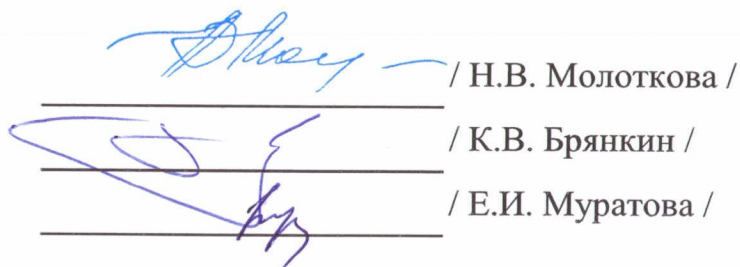 / Н.В. Молоткова /
/ К.В. Брянкин /
/ Е.И. Муратова /